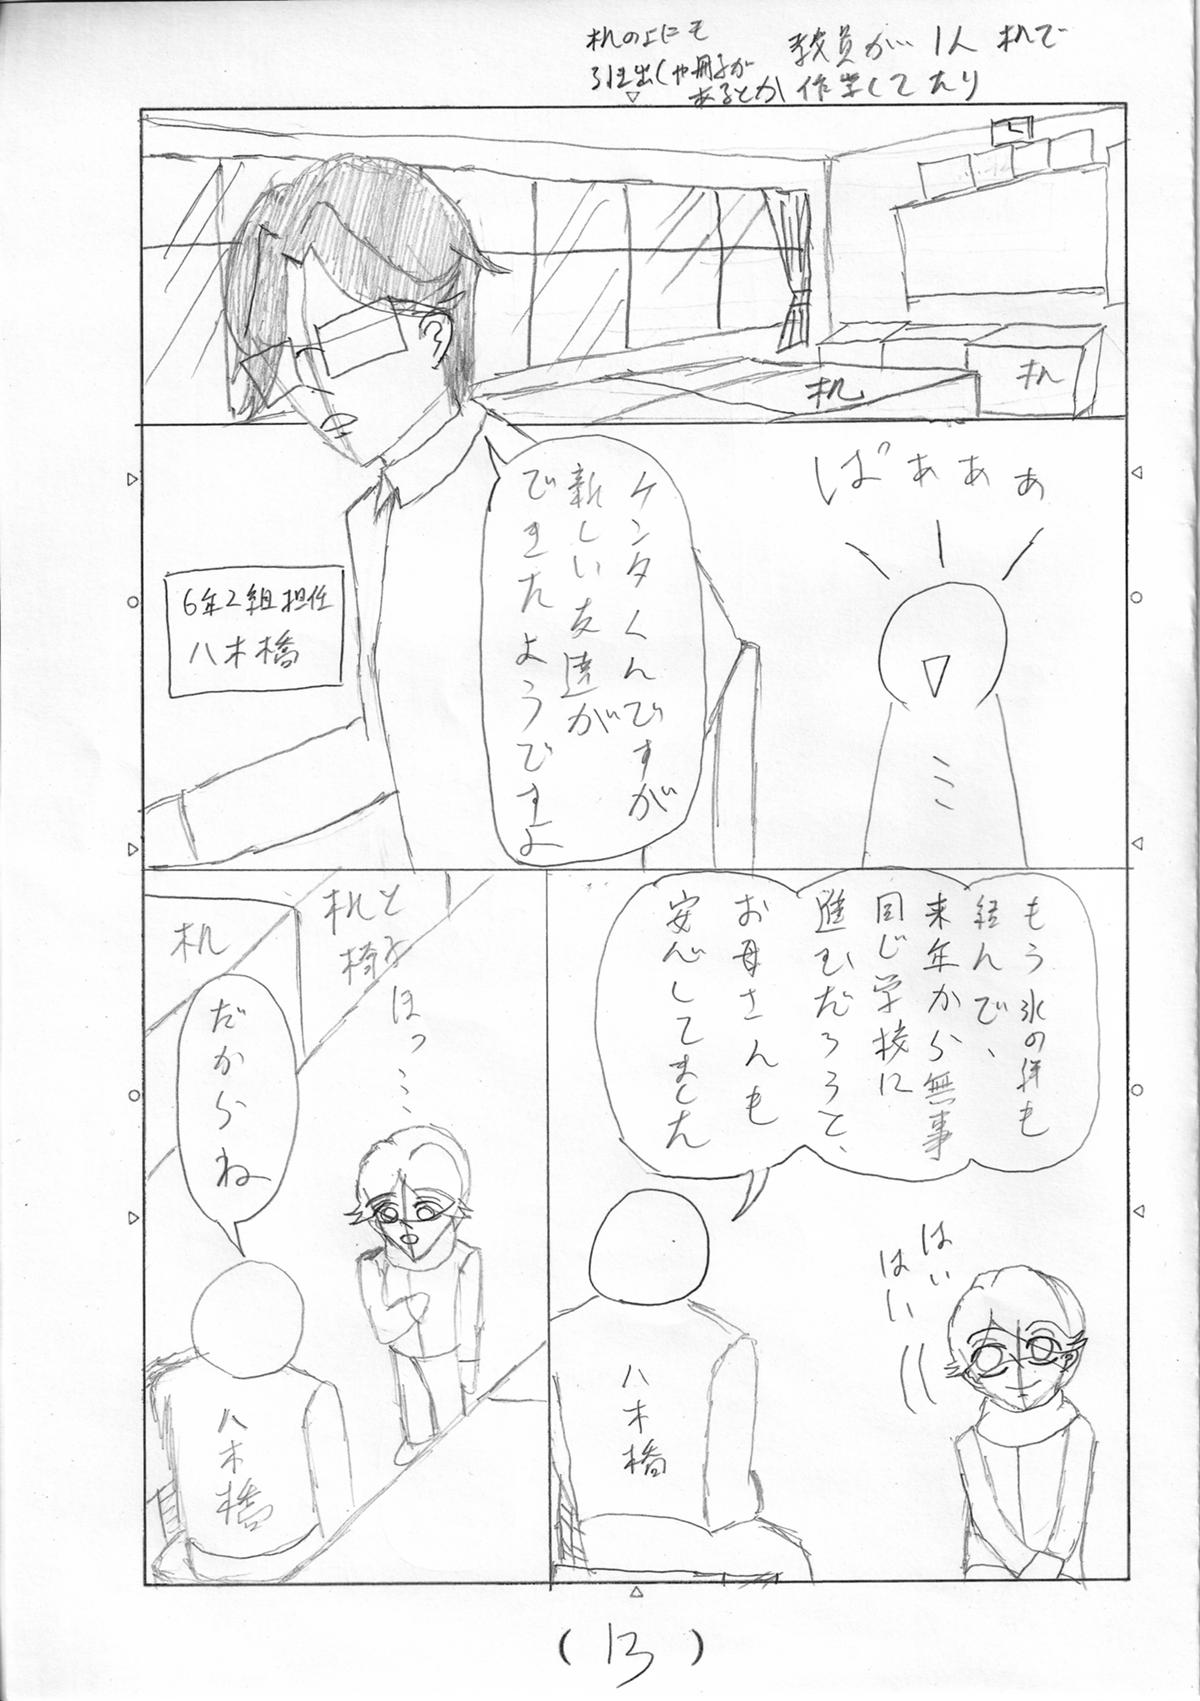 机の上にも
引き出しや冊子が
あるとか
教員が 1人 机で
作業してたり
机
机
ばぁぁぁ
ミ
ケンタくんですが
新しい友達が
できたようですよ
6年2組担任
八木橋
もう氷の件も
経んで、
来年から無事
同じ学校に
進むだろうと、
お母さんも
安心してました
はい
はい
八木橋
机と
椅子
机
ほっ…
だからね
八木橋
(13)